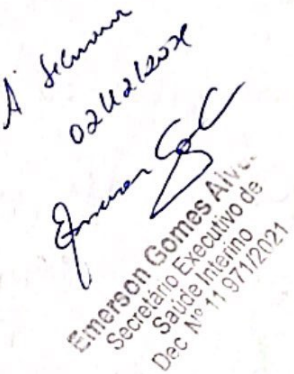 À
Emerson
Emerson Gomes Alv
Secretário Executivo de
Saúde Interino
Dec Nº 11 971/2021